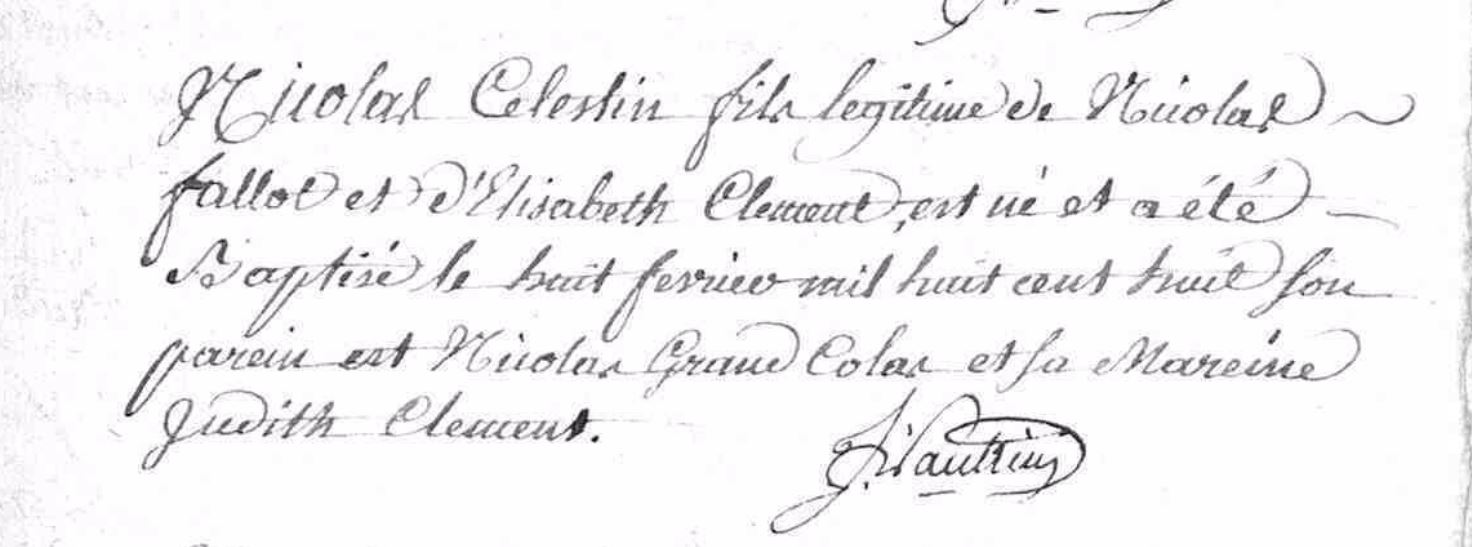 Nicolas Celestin fils legitime de Nicolas
fallot et d'Elisabeth Clement, est né et a été
Baptisé le huit fevrier mil huit cent huit son
parein est Nicolas Grand Colas et sa Mareine
Judith Clement.